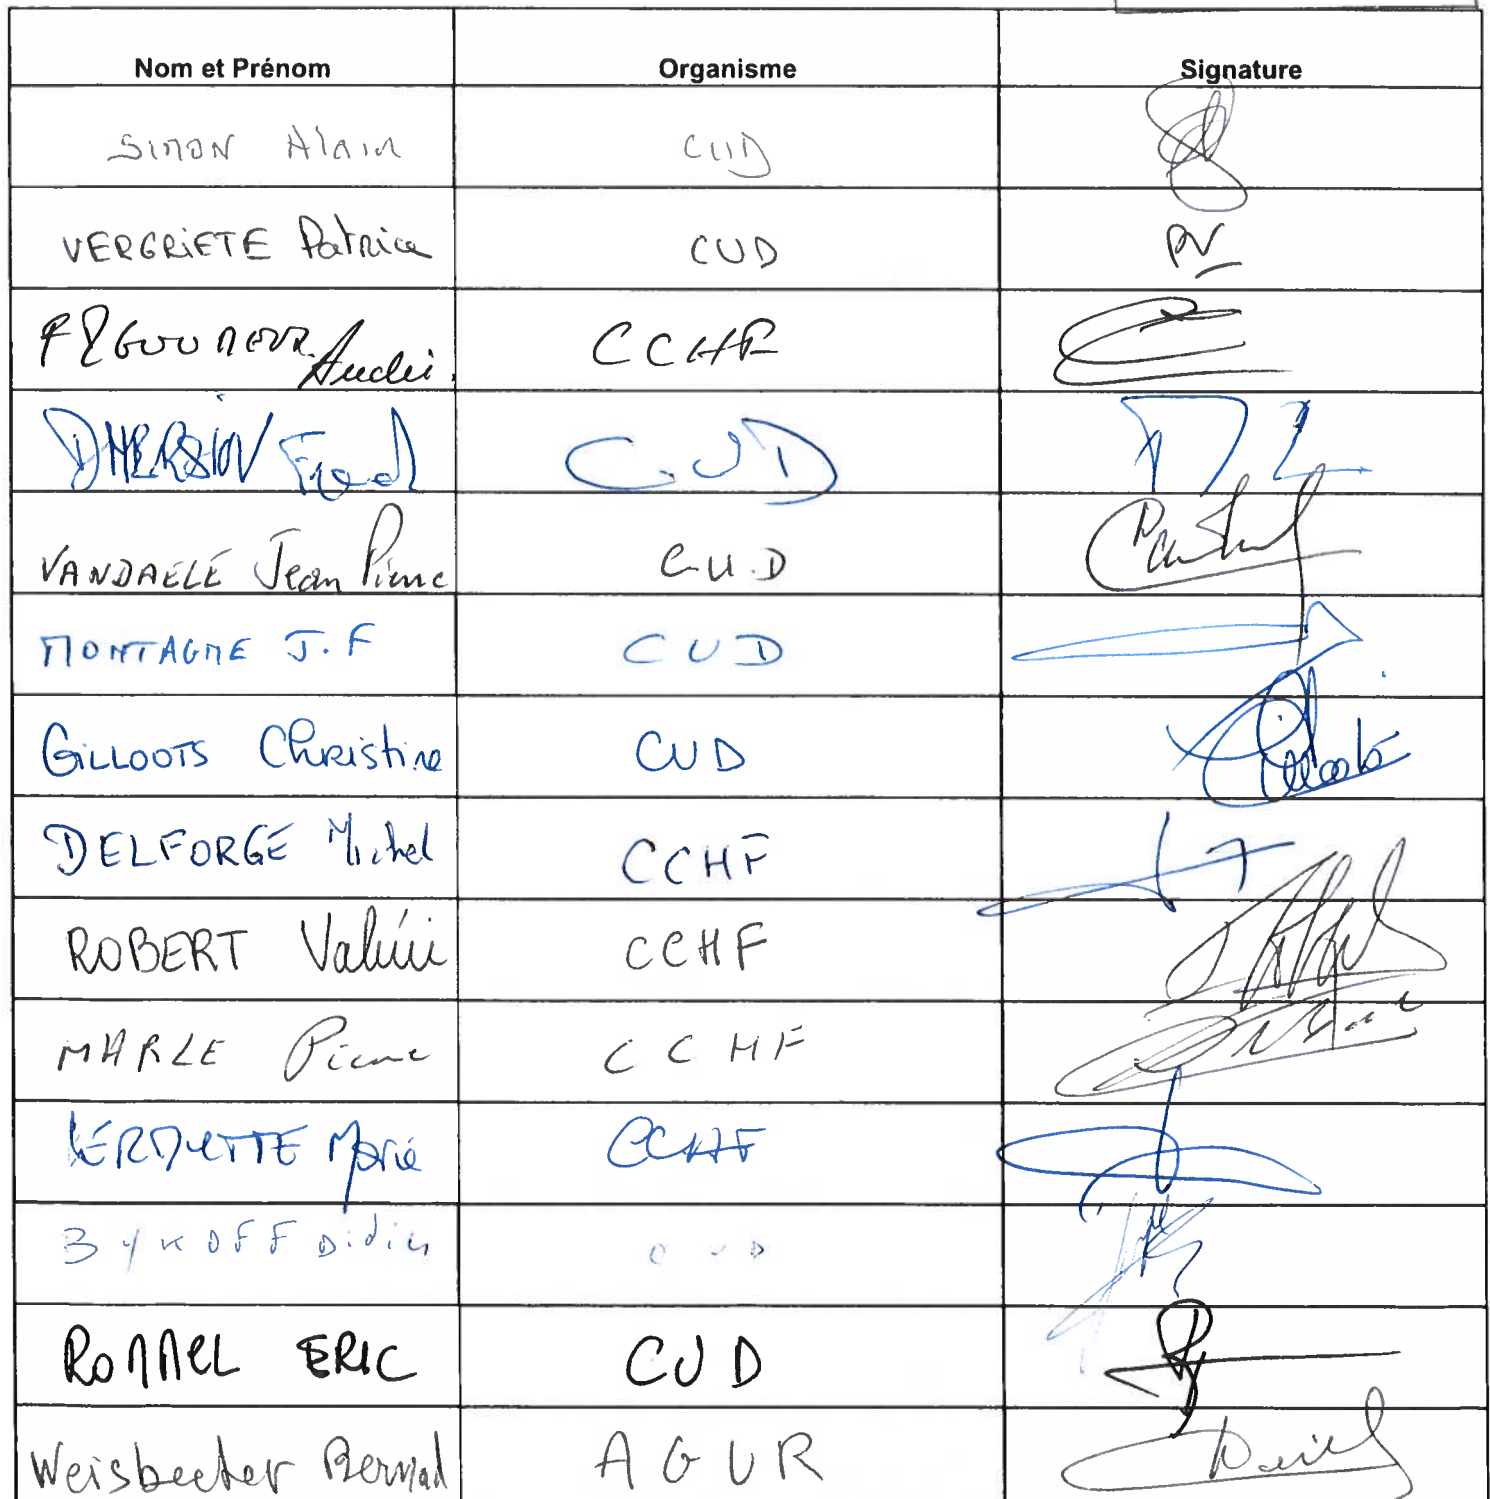 Nom et Prénom Organisme Signature
SIMON Alain CUD
VERGRIETE Patrice CUD PV
FIGOUREUX André CCHF
DHERSIN Franck CUD
VANDAELE Jean Pierre C.U.D
MONTAGNE J.F CUD
GILLOOTS Christine CUD
DELFORGE Michel CCHF
ROBERT Valérie CCHF
MARLE Pierre CCHF
VERDUTTE Marie CCHF
BYKOFF Didier CUD
ROMMEL ERIC CUD
Weisbecker Bernard AGUR